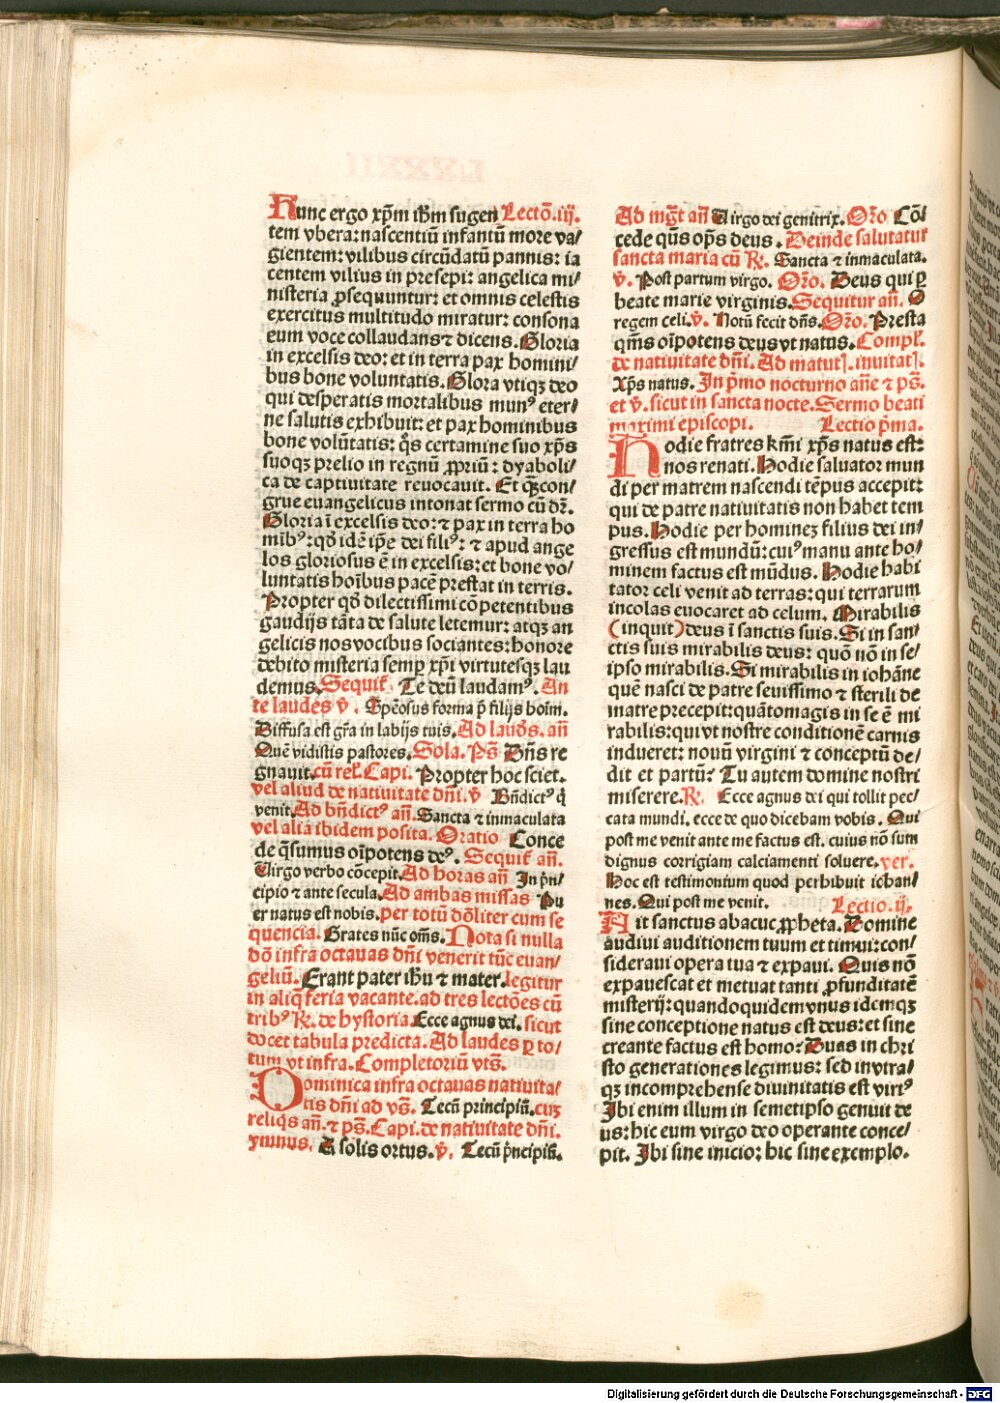 Hunc ergo xp̄m ih̄m sugen Lectō. iij.
tem vbera: nascentiū infantū more va/
gientem: vilibus circūdatū pannis: ia
centem vilius in presepi: angelica mi/
nisteria ꝓsequuntur: et omnis celestis
exercitus multitudo miratur: consona
eum voce collaudans ⁊ dicens. Gloria
in excelsis deo: et in terra pax homini/
bus bone voluntatis. Glora vtiqꝫ deo
qui desperatis mortalibus munꝰ eter/
ne salutis exhibuit: et pax hominibus
bone volūtatis: q̄s certamine suo xp̄s
suoqꝫ prelio in regnū ꝓpriū: dyaboli/
ca de captiuitate reuocauit. Et qꝫ con/
grue euangelicus intonat sermo cū dr̄.
Gloria ī excelsis deo: ⁊ pax in terra ho
mībꝰ: qd̄ idē ip̄e dei filiꝰ: ⁊ apud ange
los gloriosus ē in excelsis: et bone vo/
luntatis hoībus pacē prestat in terris.
Propter qd̄ dilectissimi cōpetentibus
gaudijs tāta de salute letemur: atqꝫ an
gelicis nos vocibus sociantes: honore
debito misteria semp̄ xp̄i virtutesqꝫ lau
demus. Sequit᷑. Te deū laudamꝰ. An
te laudes v̄. Spēosus forma p̄ filijs hoīm.
Diffusa est gr̄a in labijs tuis. Ad laud̄s. an̄
Quē vidistis pastores. Sola. Ps̄ Dn̄s re
gnauit. cū rel̄. Capi. Propter hoc sciet.
vel aliud de nativitate dn̄i. v̄ Bn̄dictꝰ q̇
venit. Ad bn̄dictꝰ an̄. Sancta ⁊ inmaculata
vel alia ibidem posita. Oratio Conce
de q̄sumus oīpotens deꝰ. Sequit᷑ an̄.
Virgo verbo cōcepit. Ad horas an̄ In p̄n/
cipio ⁊ ante secula. Ad ambas missas Pu
er natus est nobis. per totū dn̄liter cum se
quencia. Grates nūc om̄s. Nota si nulla
dō infra octauas dn̄i venerit tūc euan/
geliū. Erant pater ih̄u ⁊ mater. legitur
in aliq̄ feria vacante. ad tres lectōes cū
tribꝰ R̄. de hystoria Ecce agnus dei. sicut
docet tabula predicta. Ad laudes ꝑ to/
tum vt infra. Completoriū vts̄.
Dominica infra octauas natiuita/
tis dn̄i ad vs̄. Tecū principiū. cuꝫ
reliq̄s an̄. ⁊ ps̄. Capi. de natiuitate dn̄i.
ymnus. A solis ortus. v̄. Tecū p̄ncipiū.
Ad mg̅t an̄ Virgo dei genitrix. Or̄o Cō/
cede q̄us op̄s deus. Deinde salutatur
sancta maria cū R̄. Sancta ⁊ inmaculata.
v̄. Post partum virgo. Or̄o. Deus qui ꝑ
beate marie virginis. Sequitur an̄. O
regem celi. v̄. Notū fecit dn̄s. Or̄o. Presta
qm̄s oīpotens deus vt natus. Compl̄.
de natiuitate dn̄i. Ad matut̄. inuitat̄.
Xp̄s natus. In p̄mo nocturno an̄e ⁊ ps̄.
et v̄. sicut in sancta nocte. Sermo beati
maximi episcopi. Lectio p̄ma.
Hodie fratres km̄i xp̄s natus est:
nos renati. Hodie saluator mun
di per matrem nascendi tēpus accepit:
qui de patre natiuitatis non habet tem
pus. Hodie per hominez filius dei in/
gressus est mundū: cuiꝰ manu ante ho/
minem factus est mūdus. Hodie habi
tator celi venit ad terras: qui terrarum
incolas euocaret ad celum. Mirabilis
(inquit) deus ī sanctis suis. Si in san/
ctis suis mirabilis deus: quō nō in se/
ipso mirabilis. Si mirabilis in iohāne
quē nasci de patre seuissimo ⁊ sterili de
matre precepit: quātomagis in se ē mi
rabilis: qui vt nostre conditionē carnis
indueret: nouū virgini ⁊ conceptū de/
dit et partū? Tu autem domine nostri
miserere. R̄. Ecce agnus dei qui tollit pec/
cata mundi. ecce de quo dicebam vobis. Qui
post me venit ante me factus est. cuius nō sum
dignus corrigiam calciamenti soluere. ver.
Hoc est testimonium quod perhibuit iohan/
nes. Qui post me venit. Lectio. ij.
Ait sanctus abacuc ꝓpheta. Domine
audiui auditionem tuum et timui: con/
sideraui opera tua ⁊ expaui. Quis nō
expauescat et metuat tanti ꝓfunditatē
misterij: quandoquidem vnus idemqꝫ
sine conceptione natus est deus: et sine
creante factus est homo? Duas in chri
sto generationes legimus: sed in vtra/
qꝫ incomprehense diuinitatis est virtꝰ
Ibi enim illum in semetipso genuit de
us: hic eum virgo deo operante conce/
pit. Ibi sine inicio: hic sine exemplo.
Digitalisierung gefördert durch die Deutsche Forschungsgemeinschaft - DFG